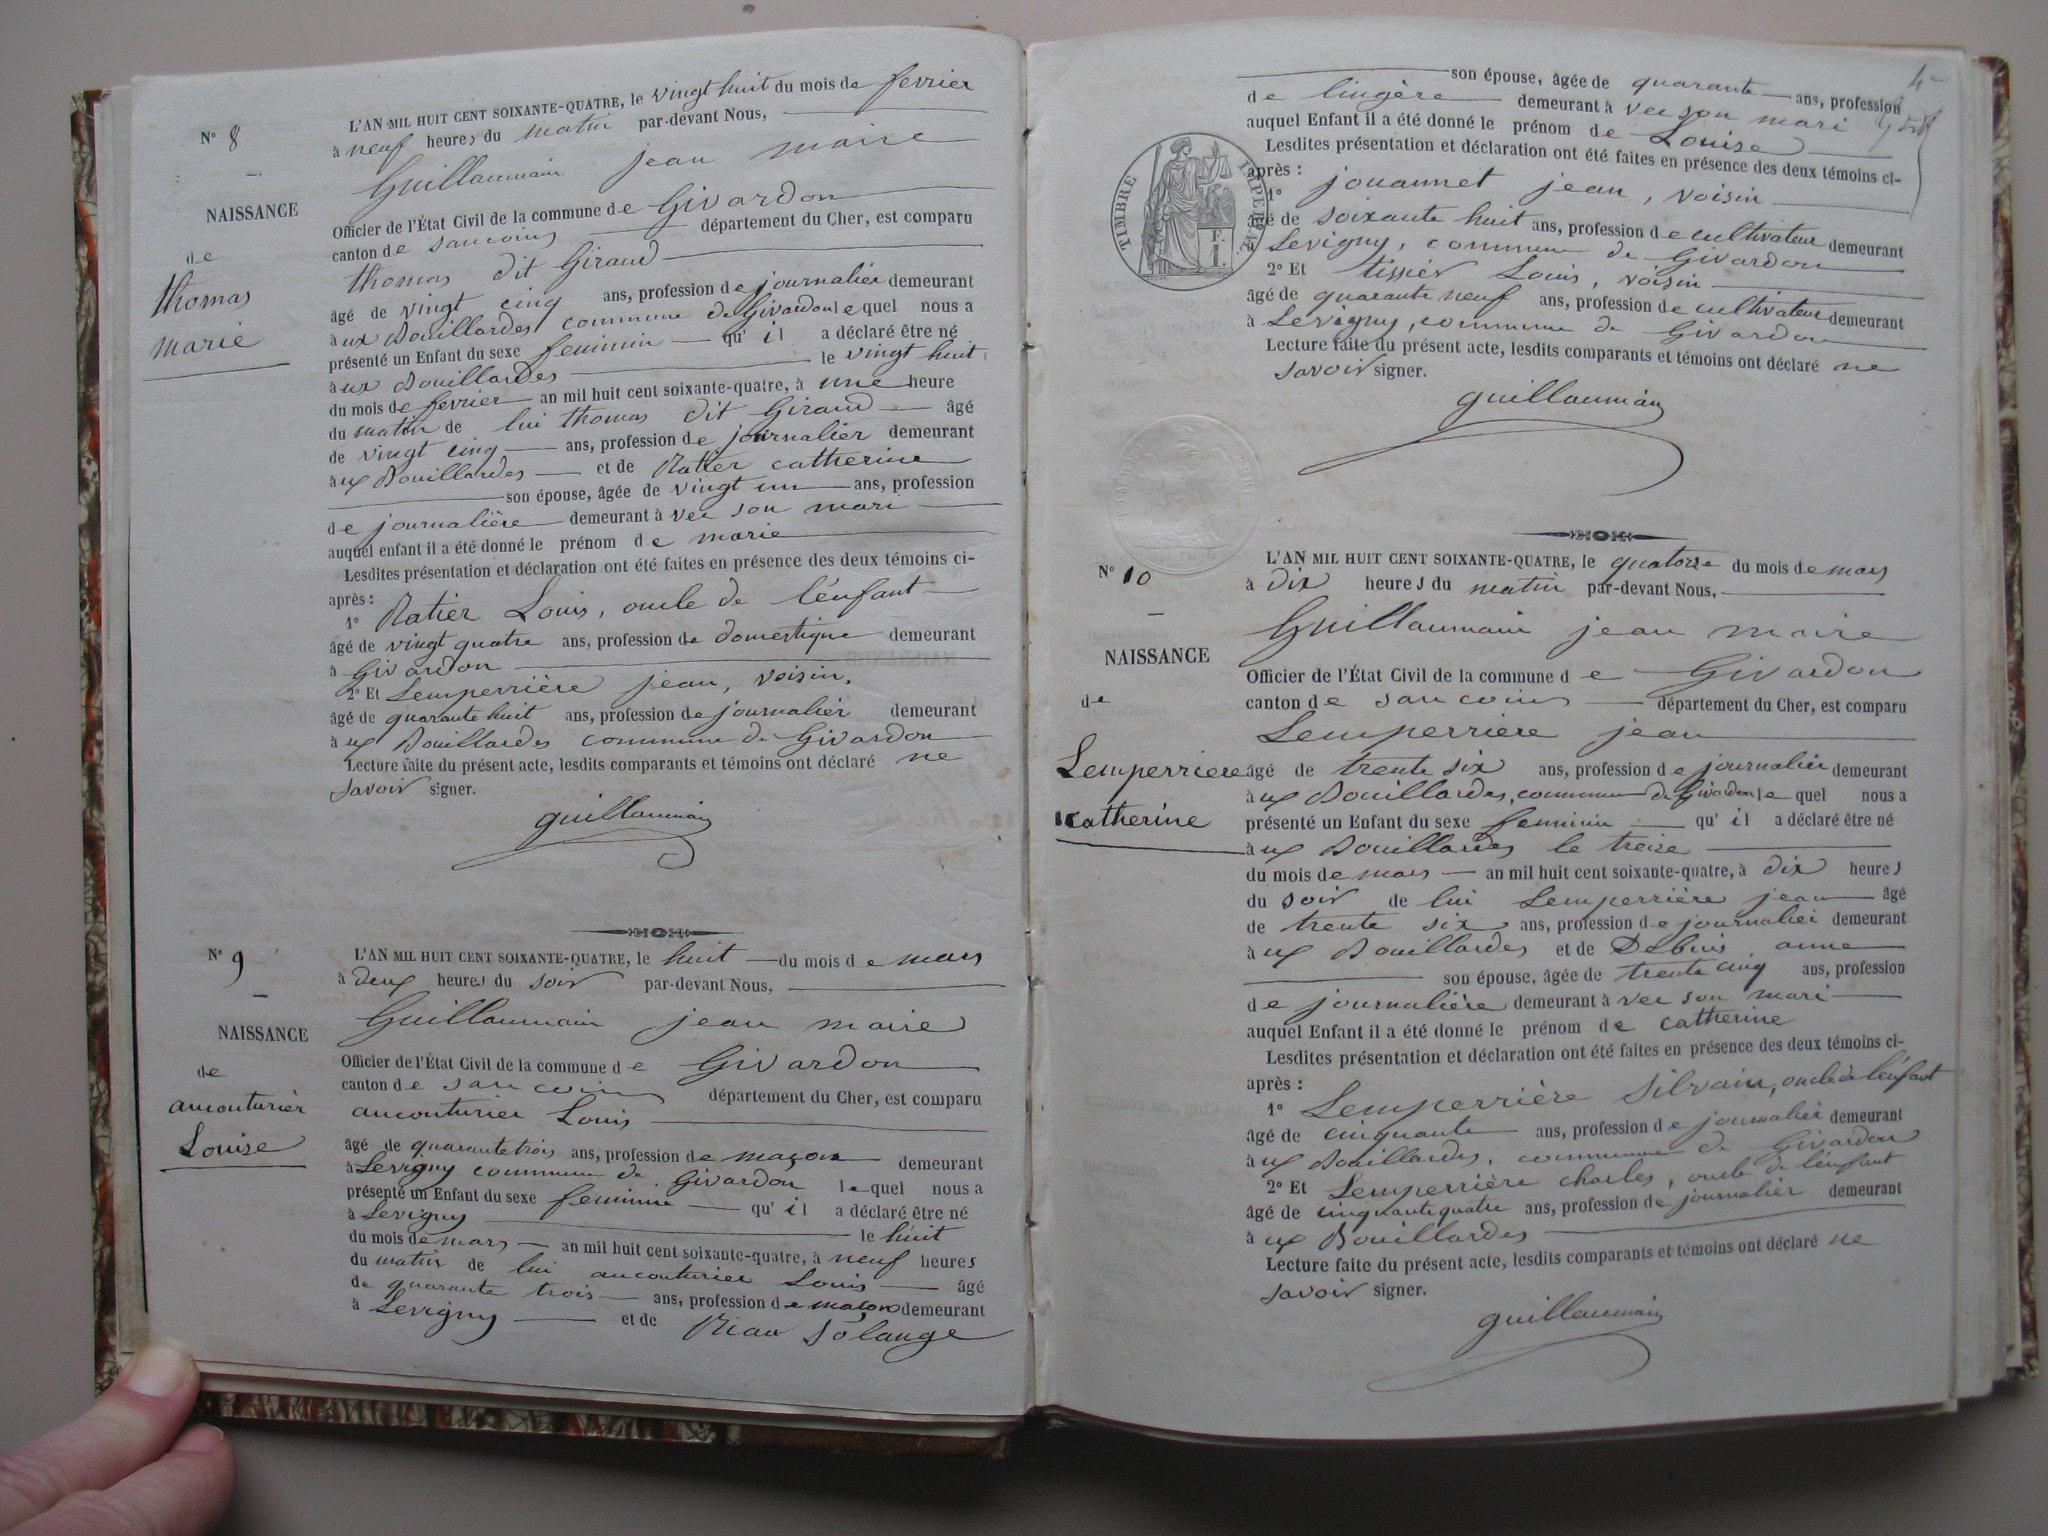 N° 8
NAISSANCE
de
thomas
marie
L'AN MIL HUIT CENT SOIXANTE-QUATRE, le vingt huit du mois de fevrier
à neuf heures du matin par-devant Nous,
Guillaumain jean maire
Officier de l'État Civil de la commune de Givardon
canton de sancoins département du Cher, est comparu
thomas dit Giraud
âgé de vingt cinq ans, profession de journalier demeurant
à ux Bouillardes commune de Givardon lequel nous a
présenté un Enfant du sexe feminin qu'il a déclaré être né
à ux Bouillardes le vingt huit
du mois de fevrier an mil huit cent soixante-quatre, à une heure
du matin de lui thomas dit Giraud âgé
de vingt cinq ans, profession de journalier demeurant
à ux Bouillardes et de Ratier catherine
son épouse, âgée de vingt un ans, profession
de journalière demeurant à vec son mari
auquel enfant il a été donné le prénom de marie
Lesdites présentation et déclaration ont été faites en présence des deux témoins ci-
après :
1° Ratier Louis, oncle de l'énfant
âgé de vingt quatre ans, profession de domestique demeurant
à Givardon
2° Et Lemperrière jean, voisin,
âgé de quarante huit ans, profession de journalier demeurant
à ux Bouillardes commune de Givardon
Lecture faite du présent acte, lesdits comparants et témoins ont déclaré ne
savoir signer.
guillaumain
N° 9
NAISSANCE
de
aucouturier
Louise
L'AN MIL HUIT CENT SOIXANTE-QUATRE, le huit du mois de mars
à deux heures du soir par-devant Nous,
Guillaumain jean maire
Officier de l'État Civil de la commune de Givardon
canton de sancoins département du Cher, est comparu
aucouturier Louis
âgé de quarante trois ans, profession de maçon demeurant
à Levigny commune de Givardon lequel nous a
présenté un Enfant du sexe feminin qu'il a déclaré être né
à Levigny le huit
du mois de mars an mil huit cent soixante-quatre, à neuf heures
du matin de lui aucouturier Louis âgé
de quarante trois ans, profession de maçon demeurant
à Levigny et de Riau Solange
son épouse, âgée de quarante ans, profession
de lingère demeurant à vec son mari
auquel Enfant il a été donné le prénom de Louise
Lesdites présentation et déclaration ont été faites en présence des deux témoins ci-
après :
1° jouannet jean, voisin
âgé de soixante huit ans, profession de cultivateur demeurant
Levigny, commune de Givardon
2° Et tissier Louis, voisin
âgé de quarante neuf ans, profession de cultivateur demeurant
à Levigny, commune de Givardon
Lecture faite du présent acte, lesdits comparants et témoins ont déclaré ne
savoir signer.
guillaumain
TIMBRE IMPERIAL
N° 10
NAISSANCE
de
Lemperriere
catherine
L'AN MIL HUIT CENT SOIXANTE-QUATRE, le quatorze du mois de mars
à dix heures du matin par-devant Nous,
Guillaumain jean maire
Officier de l'État Civil de la commune de Givardon
canton de sancoins département du Cher, est comparu
Lemperrière jean
âgé de trente six ans, profession de journalier demeurant
à ux Bouillardes, commune de Givardon lequel nous a
présenté un Enfant du sexe feminin qu'il a déclaré être né
à ux Bouillardes le treize
du mois de mars an mil huit cent soixante-quatre, à dix heures
du soir de lui Lemperrière jean âgé
de trente six ans, profession de journalier demeurant
à ux Bouillardes et de anne
son épouse, âgée de trente cinq ans, profession
de journalière demeurant à vec son mari
auquel Enfant il a été donné le prénom de catherine
Lesdites présentation et déclaration ont été faites en présence des deux témoins ci-
après :
1° Lemperrière silvain, oncle de l'énfant
âgé de cinquante ans, profession de journalier demeurant
à ux Bouillardes, commune de Givardon
2° Et Lemperrière charles, oncle de l'énfant
âgé de cinquante quatre ans, profession de journalier demeurant
à ux Bouillardes
Lecture faite du présent acte, lesdits comparants et témoins ont déclaré ne
savoir signer.
guillaumain